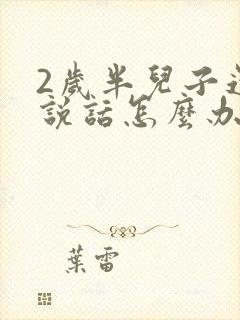 2歲半兒子
說話怎麼办
葉雷